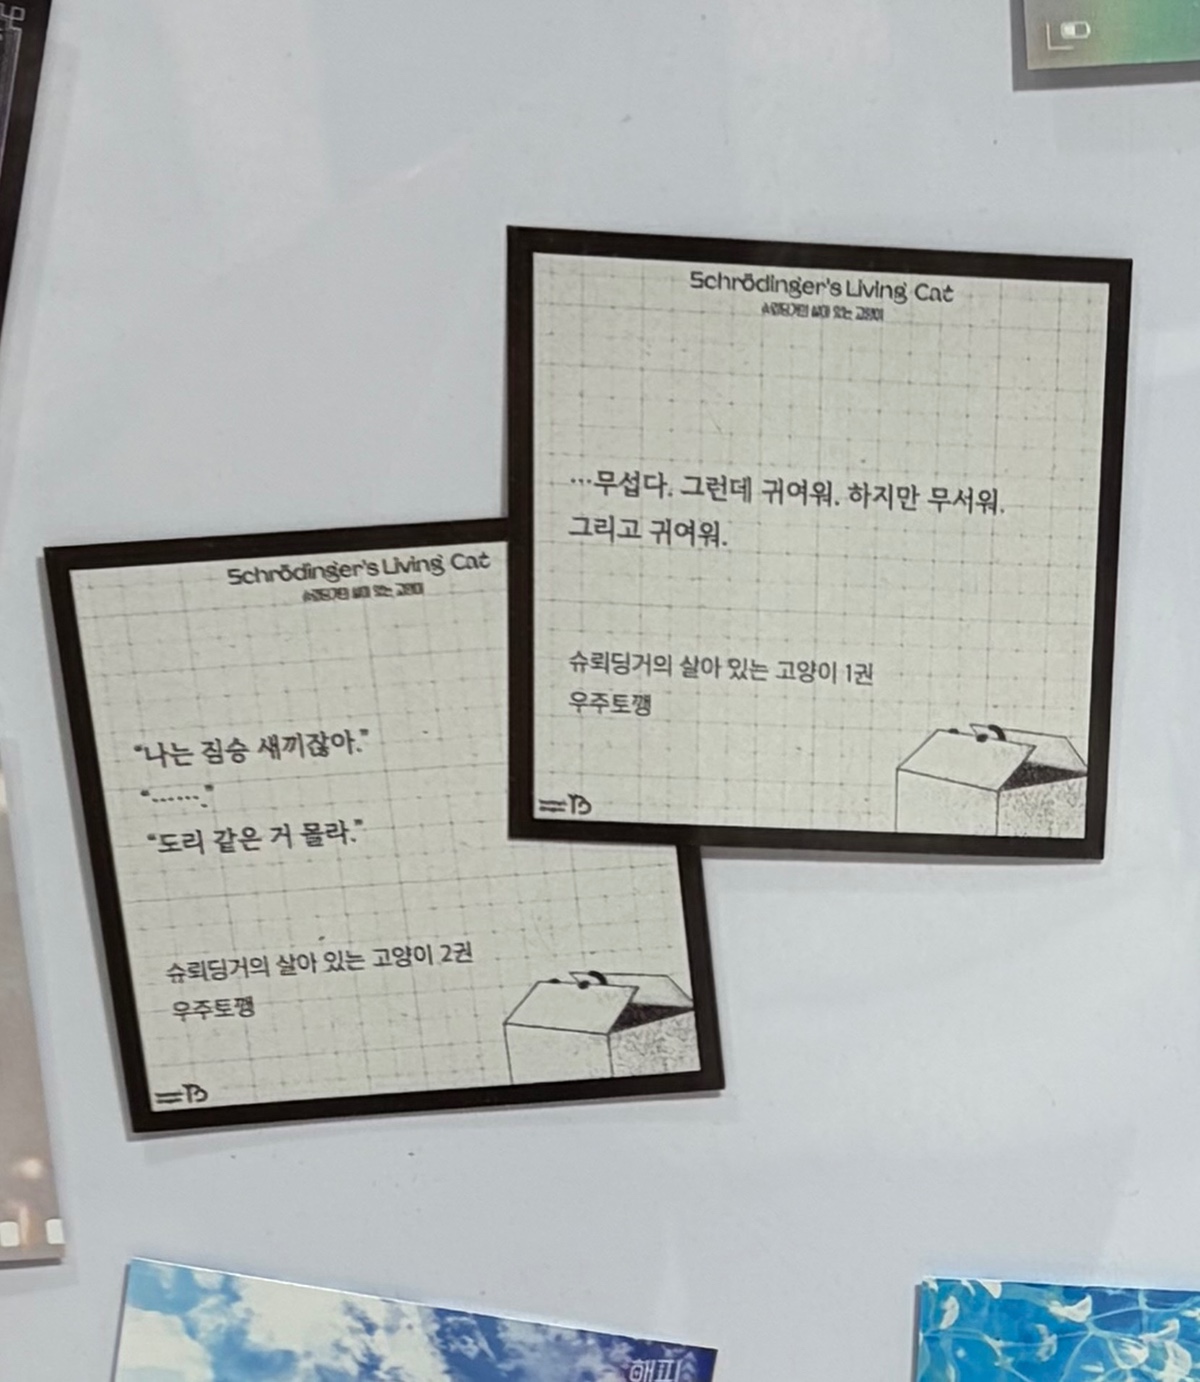 Schrödinger's Living Cat
슈뢰딩거의 살아 있는 고양이
…무섭다. 그런데 귀여워. 하지만 무서워.
그리고 귀여워.
슈뢰딩거의 살아 있는 고양이 1권
우주토깽
B
Schrödinger's Living Cat
슈뢰딩거의 살아 있는 고양이
“나는 짐승 새끼잖아.”
“…….”
“도리 같은 거 몰라.”
슈뢰딩거의 살아 있는 고양이 2권
우주토깽
B
해피